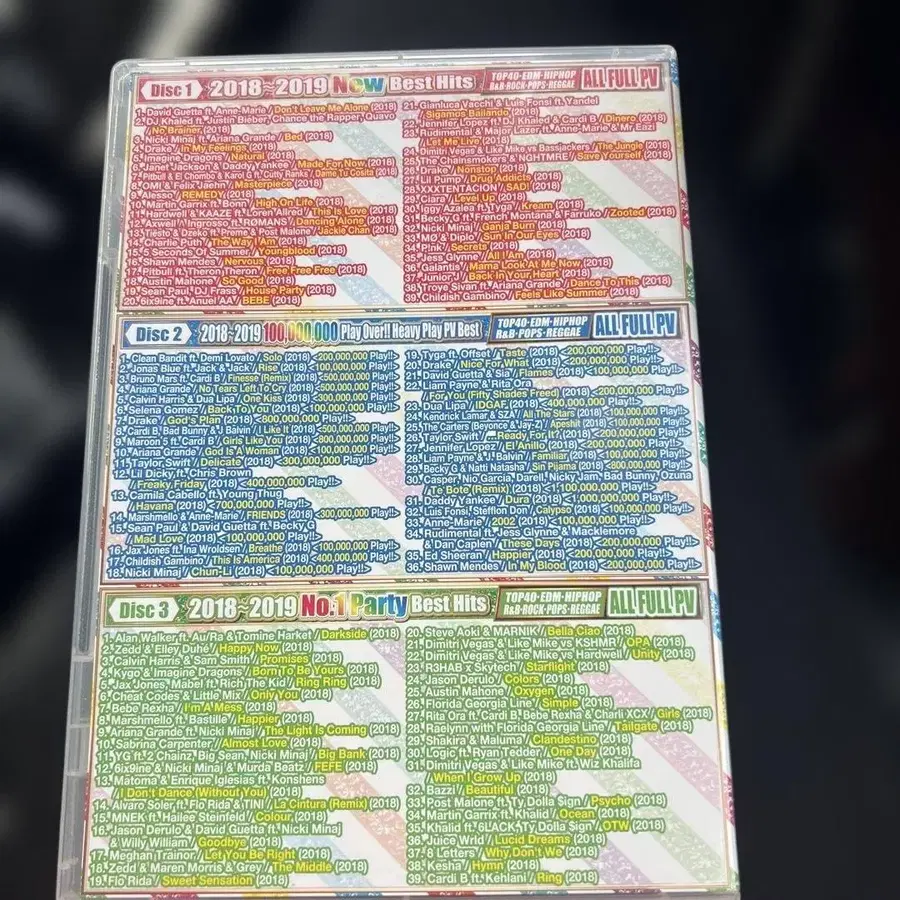 Disc 1 2018~2019 Now Best Hits TOP40·EDM·HIPHOP R&B·ROCK·POPS·REGGAE ALL FULL PV
1. David Guetta ft. Anne-Marie / Don't Leave Me Alone (2018)
2. DJ Khaled ft. Justin Bieber, Chance the Rapper, Quavo
/ No Brainer (2018)
3. Nicki Minaj ft. Ariana Grande / Bed (2018)
4. Drake / In My Feelings (2018)
5. Imagine Dragons / Natural (2018)
6. Janet Jackson & Daddy Yankee / Made For Now (2018)
7. Pitbull & El Chombo & Karol G ft. Cutty Ranks / Dame Tu Cosita (2018)
8. OMI & Felix Jaehn / Masterpiece (2018)
9. Alesso / REMEDY (2018)
10. Martin Garrix ft. Bonn / High On Life (2018)
11. Hardwell & KAAZE ft. Loren Allred / This Is Love (2018)
12. Axwell / Ingrosso ft. RØMANS / Dancing Alone (2018)
13. Tiësto & Dzeko ft. Preme & Post Malone / Jackie Chan (2018)
14. Charlie Puth / The Way I Am (2018)
15. 5 Seconds Of Summer / Youngblood (2018)
16. Shawn Mendes / Nervous (2018)
17. Pitbull ft. Theron Theron / Free Free Free (2018)
18. Austin Mahone / So Good (2018)
19. Sean Paul, DJ Frass / House Party (2018)
20. 6ix9ine ft. Anuel AA / BEBE (2018)
21. Gianluca Vacchi & Luis Fonsi ft. Yandel
/ Sigamos Bailando (2018)
22. Jennifer Lopez ft. DJ Khaled & Cardi B / Dinero (2018)
23. Rudimental & Major Lazer ft. Anne-Marie & Mr Eazi
/ Let Me Live (2018)
24. Dimitri Vegas & Like Mike vs Bassjackers / The Jungle (2018)
25. The Chainsmokers & NGHTMRE / Save Yourself (2018)
26. Drake / Nonstop (2018)
27. Lil Pump / Drug Addicts (2018)
28. XXXTENTACION / SAD! (2018)
29. Ciara / Level Up (2018)
30. Iggy Azalea ft. Tyga / Kream (2018)
31. Becky G ft. French Montana & Farruko / Zooted (2018)
32. Nicki Minaj / Ganja Burn (2018)
33. MØ & Diplo / Sun In Our Eyes (2018)
34. P!nk / Secrets (2018)
35. Jess Glynne / All I Am (2018)
36. Galantis / Mama Look At Me Now (2018)
37. Junior J / Back In Your Heart (2018)
38. Troye Sivan ft. Ariana Grande / Dance To This (2018)
39. Childish Gambino / Feels Like Summer (2018)
Disc 2 2018~2019 100,000,000 Play Over!! Heavy Play PV Best TOP40·EDM·HIPHOP R&B·POPS·REGGAE ALL FULL PV
1. Clean Bandit ft. Demi Lovato / Solo (2018) <200,000,000 Play!!>
2. Jonas Blue ft. Jack & Jack / Rise (2018) <100,000,000 Play!!>
3. Bruno Mars ft. Cardi B / Finesse (Remix) (2018) <500,000,000 Play!!>
4. Ariana Grande / No Tears Left To Cry (2018) <500,000,000 Play!!>
Calvin Harris & Dua Lipa / One Kiss (2018) <300,000,000 Play!!>
6. Selena Gomez / Back To You (2018) <100,000,000 Play!!>
7. Drake / God's Plan (2018) <800,000,000 Play!!>
8. Cardi B, Bad Bunny & J Balvin / I Like It (2018) <500,000,000 Play!!>
9. Maroon 5 ft. Cardi B / Girls Like You (2018) <800,000,000 Play!!>
10. Ariana Grande / God Is A Woman (2018) <100,000,000 Play!!>
11. Taylor Swift / Delicate (2018) <300,000,000 Play!!>
12. Lil Dicky ft. Chris Brown
/ Freaky Friday (2018) <400,000,000 Play!!>
13. Camila Cabello ft. Young Thug
/ Havana (2018) <700,000,000 Play!!>
14. Marshmello & Anne-Marie / FRIENDS (2018) <300,000,000 Play!!>
15. Sean Paul & David Guetta ft. Becky G
/ Mad Love (2018) <100,000,000 Play!!>
16. Jax Jones ft. Ina Wroldsen / Breathe (2018) <100,000,000 Play!!>
17. Childish Gambino / This is America (2018) <400,000,000 Play!!>
18. Nicki Minaj / Chun-Li (2018) <100,000,000 Play!!>
19. Tyga ft. Offset / Taste (2018) <200,000,000 Play!!>
20. Drake / Nice For What (2018) <200,000,000 Play!!>
21. David Guetta & Sia / Flames (2018) <100,000,000 Play!!>
22. Liam Payne & Rita Ora
/ For You (Fifty Shades Freed) (2018) <200,000,000 Play!!>
23. Dua Lipa / IDGAF (2018) <400,000,000 Play!!>
24. Kendrick Lamar & SZA / All The Stars (2018) <100,000,000 Play!!>
25. The Carters (Beyonce & Jay-Z) / Apeshit (2018) <100,000,000 Play!!>
26. Taylor Swift / ...Ready For It? (2018) <200,000,000 Play!!>
27. Jennifer Lopez / El Anillo (2018) <200,000,000 Play!!>
28. Liam Payne & J Balvin / Familiar (2018) <100,000,000 Play!!>
29. Becky G & Natti Natasha / Sin Pijama (2018) <800,000,000 Play!!>
30. Casper, Nio Garcia, Darell, Nicky Jam, Bad Bunny, Ozuna
/ Te Bote (Remix) (2018) <1,100,000,000 Play!!>
31. Daddy Yankee / Dura (2018) <1,000,000,000 Play!!>
32. Luis Fonsi, Stefflon Don / Calypso (2018) <100,000,000 Play!!>
33. Anne-Marie / 2002 (2018) <100,000,000 Play!!>
34. Rudimental ft. Jess Glynne & Macklemore
& Dan Caplen / These Days (2018) <200,000,000 Play!!>
35. Ed Sheeran / Happier (2018) <200,000,000 Play!!>
36. Shawn Mendes / In My Blood (2018) <200,000,000 Play!!>
Disc 3 2018~2019 No.1 Party Best Hits TOP40·EDM·HIPHOP R&B·ROCK·POPS·REGGAE ALL FULL PV
1. Alan Walker ft. Au/Ra & Tomine Harket / Darkside (2018)
2. Zedd & Elley Duhé / Happy Now (2018)
3. Calvin Harris & Sam Smith / Promises (2018)
4. Kygo & Imagine Dragons / Born To Be Yours (2018)
5. Jax Jones, Mabel ft. Rich The Kid / Ring Ring (2018)
6. Cheat Codes & Little Mix / Only You (2018)
7. Bebe Rexha / I'm A Mess (2018)
8. Marshmello ft. Bastille / Happier (2018)
9. Ariana Grande ft. Nicki Minaj / The Light Is Coming (2018)
10. Sabrina Carpenter / Almost Love (2018)
11. YG ft. 2 Chainz, Big Sean, Nicki Minaj / Big Bank (2018)
12. 6ix9ine & Nicki Minaj & Murda Beatz / FEFE (2018)
13. Matoma & Enrique Iglesias ft. Konshens
/ I Don't Dance (Without You) (2018)
14. Alvaro Soler ft. Flo Rida & TINI / La Cintura (Remix) (2018)
15. MNEK ft. Hailee Steinfeld / Colour (2018)
16. Jason Derulo & David Guetta ft. Nicki Minaj
& Willy William / Goodbye (2018)
17. Meghan Trainor / Let You Be Right (2018)
18. Zedd & Maren Morris & Grey / The Middle (2018)
19. Flo Rida / Sweet Sensation (2018)
20. Steve Aoki & MARNIK / Bella Ciao (2018)
21. Dimitri Vegas & Like Mike vs KSHMR / OPA (2018)
22. Dimitri Vegas & Like Mike vs Hardwell / Unity (2018)
23. R3HAB x Skytech / Starflight (2018)
24. Jason Derulo / Colors (2018)
25. Austin Mahone / Oxygen (2018)
26. Florida Georgia Line / Simple (2018)
27. Rita Ora ft. Cardi B, Bebe Rexha & Charli XCX / Girls (2018)
28. Raelynn with Florida Georgia Line / Tailgate (2018)
29. Shakira & Maluma / Clandestino (2018)
30. Logic ft. Ryan Tedder / One Day (2018)
31. Dimitri Vegas & Like Mike ft. Wiz Khalifa
/ When I Grow Up (2018)
32. Bazzi / Beautiful (2018)
33. Post Malone ft. Ty Dolla $ign / Psycho (2018)
34. Martin Garrix ft. Khalid / Ocean (2018)
35. Khalid ft. 6LACK, Ty Dolla $ign / OTW (2018)
36. Juice Wrld / Lucid Dreams (2018)
37. 8 Letters / Why Don't We (2018)
38. Kesha / Hymn (2018)
39. Cardi B ft. Kehlani / Ring (2018)